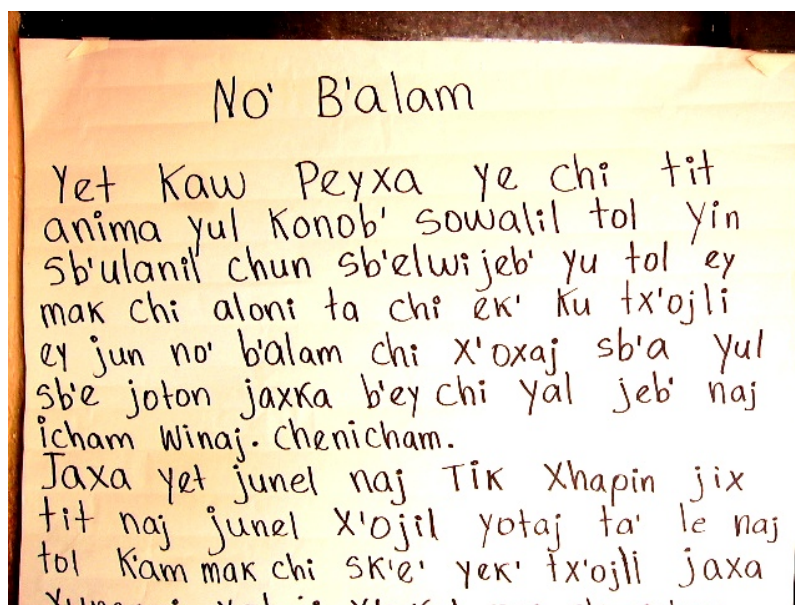 No' B'alam
Yet Kaw Peyxa ye chi tit
anima yul Konob' sowalil tol yin
sb'ulanil chun sb'elwi jeb' yu tol ey
mak chi aloni ta chi ek' ku tx'ojli
ey jun no' b'alam chi x'oxaj sb'a yul
sb'e joton jaxka b'ey chi yal jeb' naj
icham winaj. chenicham.
Jaxa yet junel naj Tik Xhapin jix
tit naj junel x'ojil yotaj ta' le naj
tol k'am mak chi sk'e' yek' tx'ojli jaxa